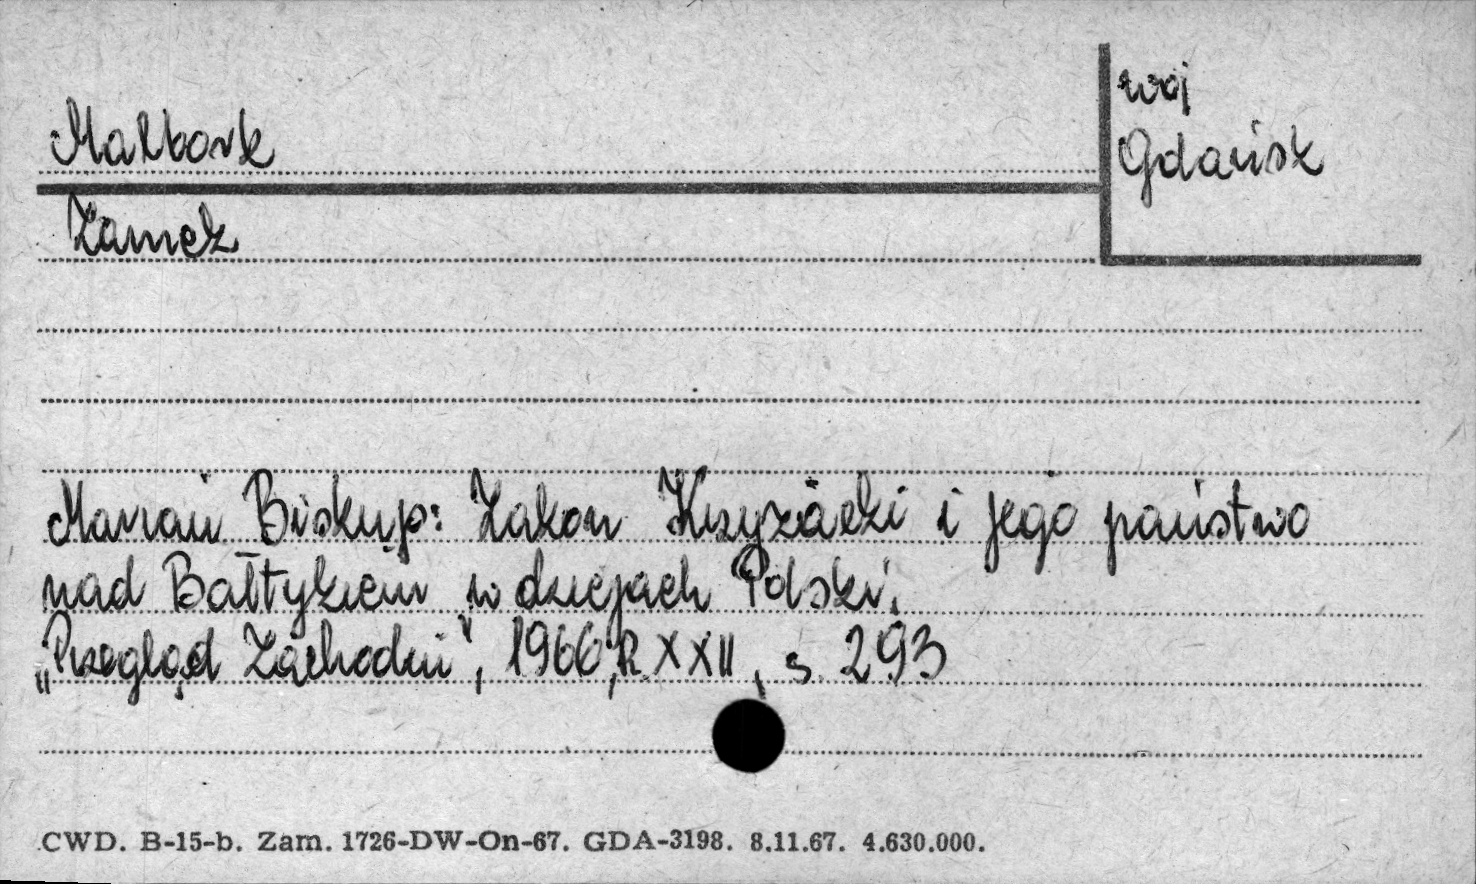 Malbork
woj
Gdańsk
Zamek
Marian Biskup: Zakon Krzyżacki i jego państwo
nad Bałtykiem w dziejach Polski,
„Przegląd Zachodni", 1966, R. XXII, s. 293
CWD. B-15-b. Zam. 1726-DW-On-67. GDA-3198. 8.11.67. 4.630.000.